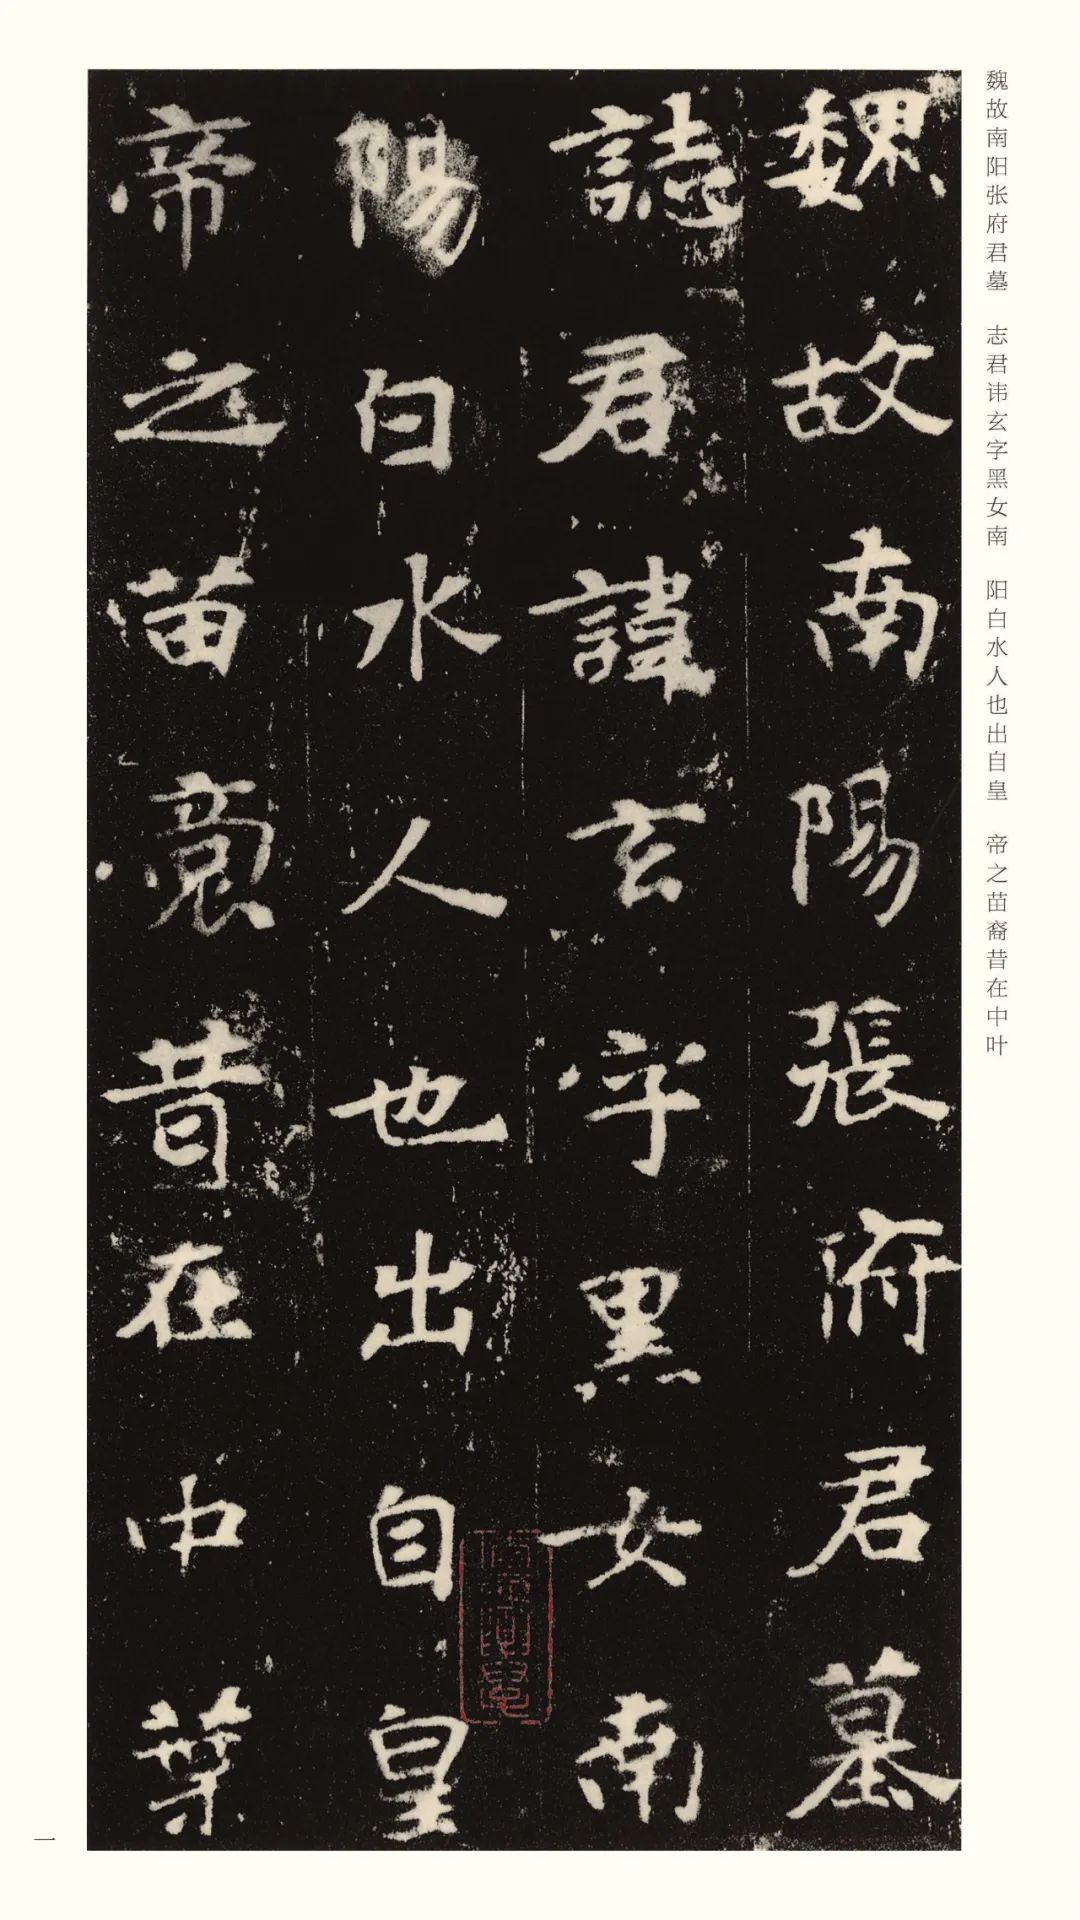 魏故南陽張府君墓
誌君諱玄字黑女南
陽白水人也出自皇
帝之苗裔昔在中葉
魏故南阳张府君墓　志君讳玄字黑女南　阳白水人也出自皇　帝之苗裔昔在中叶
一